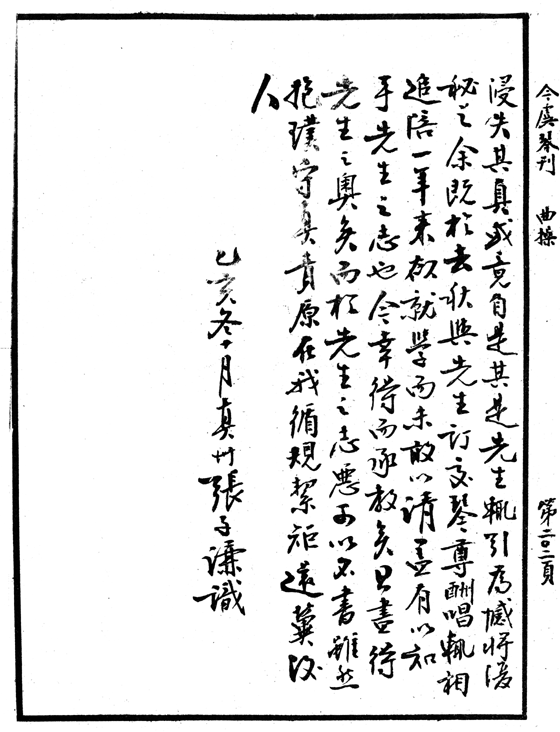 今虞琴刊　曲操　第二〇二頁
浸失其真或竟自是其是先生輒引為憾將復
秘之余既於去秋與先生訂交琴尊酬唱輒相
追陪一年來欲就學而未敢以請蓋有以知
乎先生之志也今幸得而承教矣且盡得
先生之奧矣而於先生之志惡可以不書雖然
抱璞守真責原在我循規絜矩還冀後
人
己亥冬十月真州張子謙識